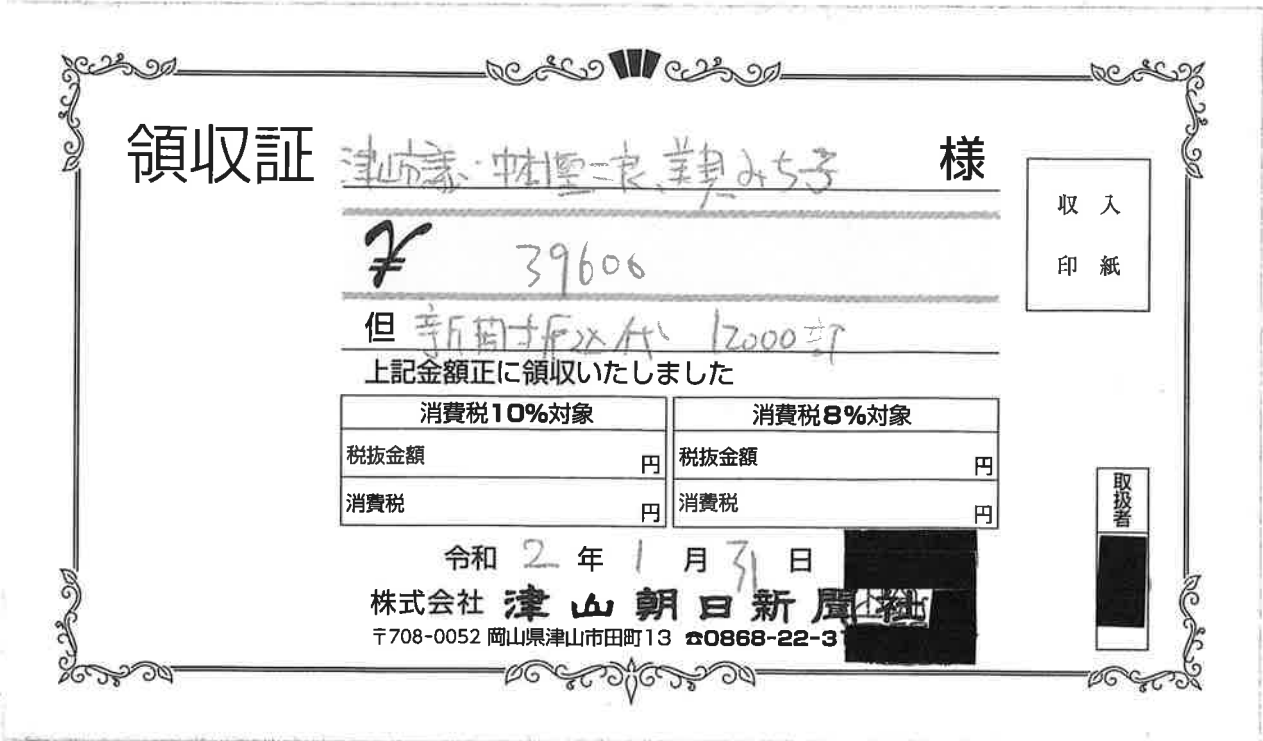 領収証 津山市議・中村聖二良、美見みち子 様
収入
印紙
¥ 39600
但 新聞折込代 12000部
上記金額正に領収いたしました
消費税10%対象 消費税8%対象
税抜金額 円 税抜金額 円
消費税 円 消費税 円
取扱者
令和 2 年 1 月 31 日
株式会社 津山朝日新聞社
〒708-0052 岡山県津山市田町13 ☎0868-22-3